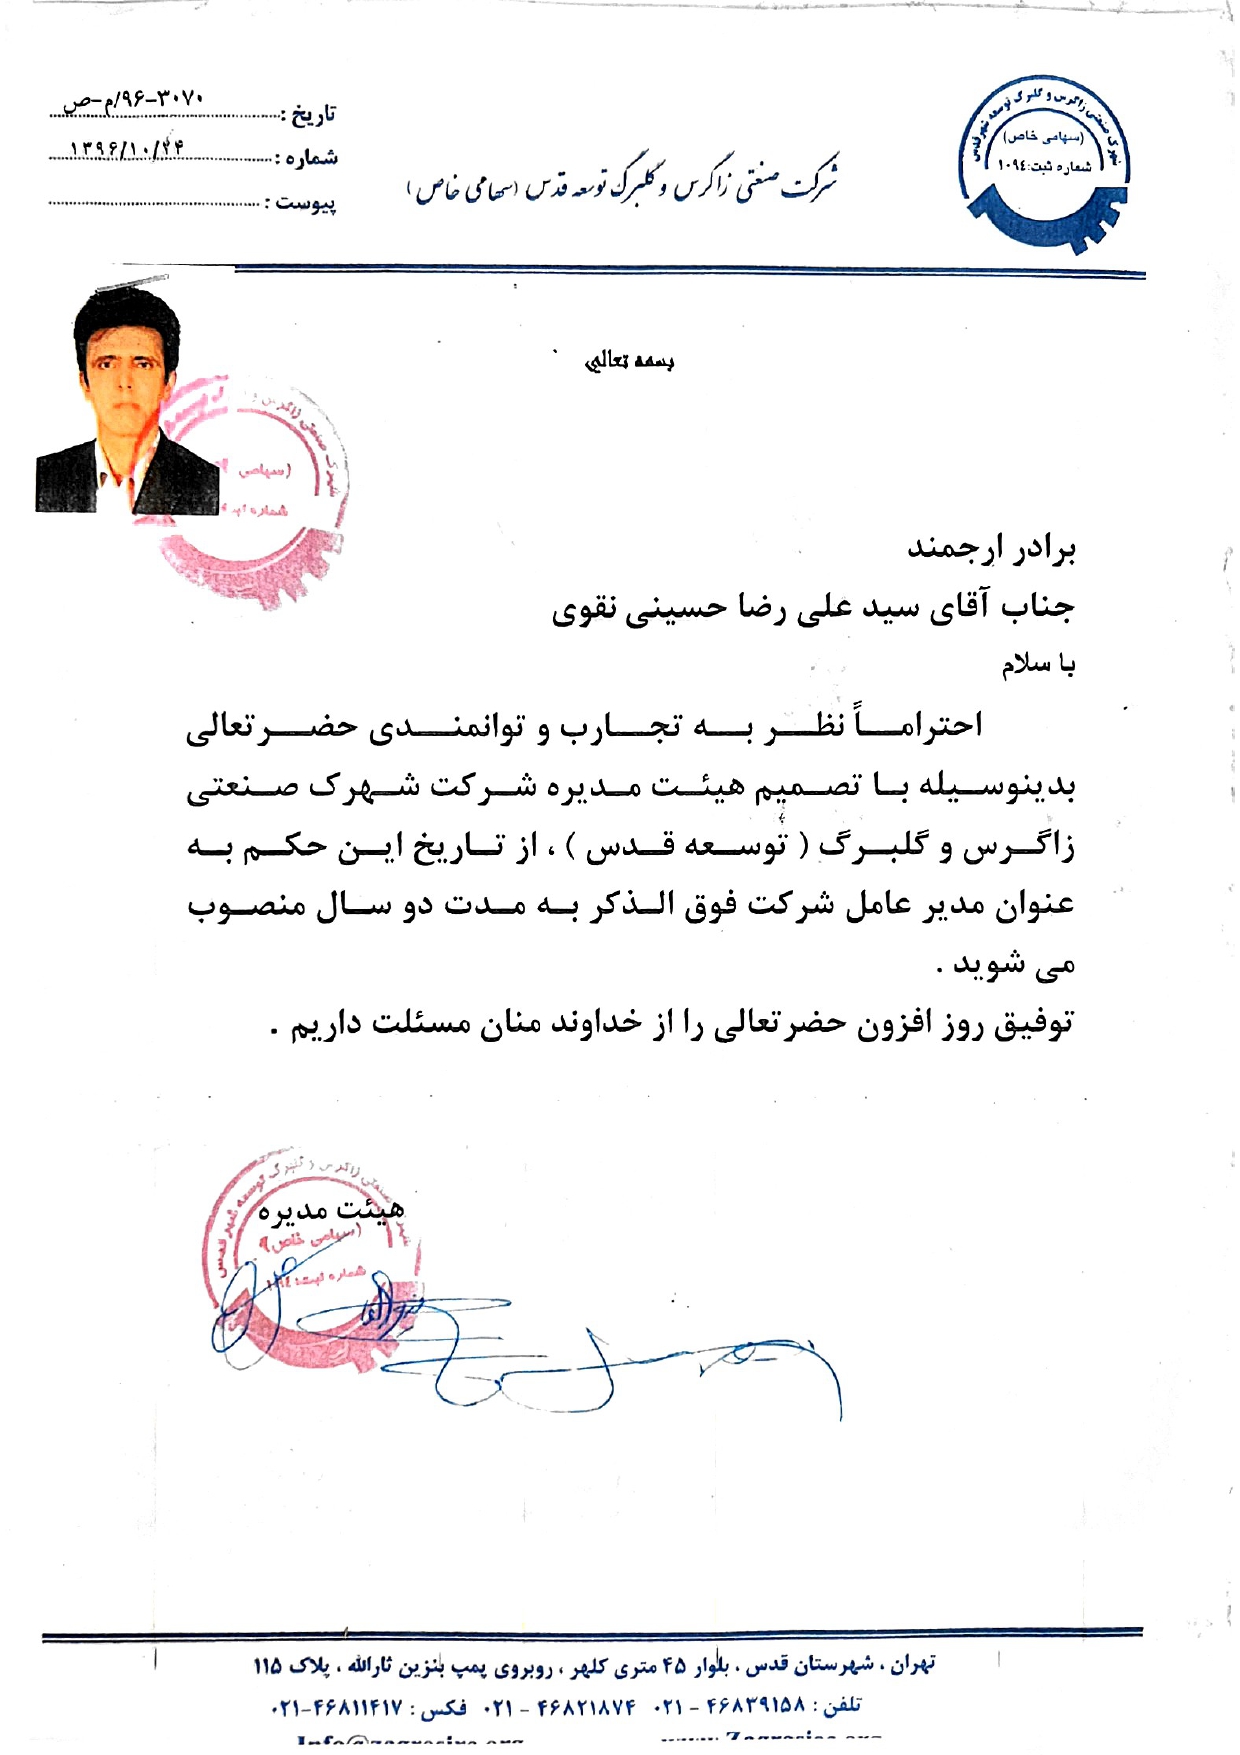 شهرک صنعتی زاگرس و گلبرگ توسعه شهر قدس
(سهامی خاص)
شماره ثبت: ۱۰۹٤
شرکت صنعتی زاگرس و گلبرگ توسعه قدس (سهامی خاص)
تاریخ : ۹۶-۳۰۷۰/م-ص
شماره : ۱۳۹۶/۱۰/۲۴
پیوست :
بسمه تعالی
برادر ارجمند
جناب آقای سید علی رضا حسینی نقوی
با سلام
احتراماً نظر به تجارب و توانمندی حضرتعالی
بدینوسیله با تصمیم هیئت مدیره شرکت شهرک صنعتی
زاگرس و گلبرگ ( توسعه قدس ) ، از تاریخ این حکم به
عنوان مدیر عامل شرکت فوق الذکر به مدت دو سال منصوب
می شوید .
توفیق روز افزون حضرتعالی را از خداوند منان مسئلت داریم .
هیئت مدیره
(سهامی خاص)
شماره ثبت: ۱۰۹٤
تهران ، شهرستان قدس ، بلوار ۴۵ متری کلهر ، روبروی پمپ بنزین ثارالله ، پلاک ۱۱۵
تلفن : ۴۶۸۳۹۱۵۸ - ۰۲۱ ۴۶۸۲۱۸۷۴ - ۰۲۱ فکس : ۴۶۸۱۱۴۱۷-۰۲۱